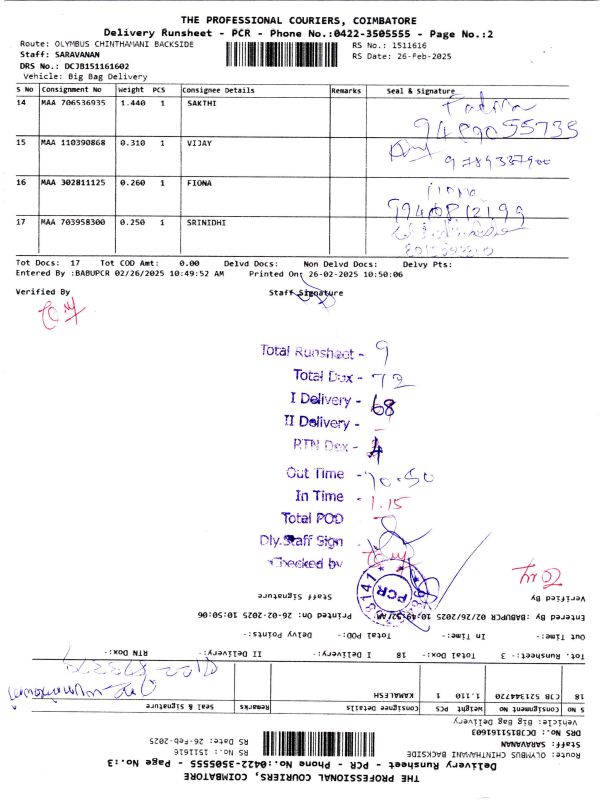 THE PROFESSIONAL COURIERS, COIMBATORE
Delivery Runsheet - PCR - Phone No.:0422-3505555 - Page No.:2
Route: OLYMBUS CHINTHAMANI BACKSIDE RS No.: 1511616
Staff: SARAVANAN RS Date: 26-Feb-2025
DRS No.: DCJB151161602
Vehicle: Big Bag Delivery
S No Consignment No Weight PCS Consignee Details Remarks Seal & Signature
14 MAA 706536935 1.440 1 SAKTHI
15 MAA 110390868 0.310 1 VIJAY
9789337900
16 MAA 302811125 0.260 1 FIONA Fiona
17 MAA 703958300 0.250 1 SRINIDHI
Tot Docs: 17 Tot COD Amt: 0.00 Delvd Docs: Non Delvd Docs: Delvy Pts:
Entered By :BABUPCR 02/26/2025 10:49:52 AM Printed On: 26-02-2025 10:50:06
Verified By Staff Signature
Total Runsheet - 9
Total Dox - 72
I Delivery - 68
II Delivery -
RTN Dox - 4
Out Time - 10.50
In Time - 1.15
Total POD
Dly.Staff Sign -
Checked by
PCR
THE PROFESSIONAL COURIERS, COIMBATORE
Delivery Runsheet - PCR - Phone No.:0422-3505555 - Page No.:3
Route: OLYMBUS CHINTHAMANI BACKSIDE RS No.: 1511616
Staff: SARAVANAN RS Date: 26-Feb-2025
DRS No.: DCJB151161603
Vehicle: Big Bag Delivery
S NO Consignment NO Weight PCS Consignee Details Remarks Seal & Signature
18 CJB 521344720 1.110 1 KAMALESH
Tot. Runsheet:- 3 Total Dox:- 18 I Delivery:- II Delivery:- RTN Dox:-
Out Time:- In Time:- Total POD:- Delvy Points:-
Entered By :BABUPCR 02/26/2025 10:49:52 AM Printed On: 26-02-2025 10:50:06
Verified By Staff Signature